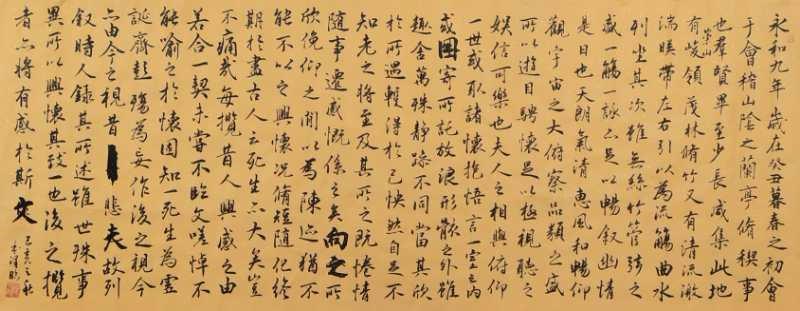 永和九年歲在癸丑暮春之初會
于會稽山陰之蘭亭脩稧事
也羣賢畢至少長咸集此地
崇山
有峻領茂林脩竹又有清流激
湍暎帶左右引以為流觴曲水
列坐其次雖無絲竹管弦之
盛一觴一詠亦足以暢叙幽情
是日也天朗氣清惠風和暢仰
觀宇宙之大俯察品類之盛
所以遊目騁懷足以極視聽之
娛信可樂也夫人之相與俯仰
一世或取諸懷抱悟言一室之內
或因寄所託放浪形骸之外雖
趣舍萬殊靜躁不同當其欣
於所遇輙得於己快然自足不
知老之將至及其所之既惓情
隨事遷感慨係之矣向之所
欣俛仰之閒以為陳迹猶不
能不以之興懷況脩短隨化終
期於盡古人云死生亦大矣豈
不痛哉每攬昔人興感之由
若合一契未嘗不臨文嗟悼不
能喻之於懷固知一死生為虛
誕齊彭殤為妄作後之視今
亦由今之視昔悲夫故列
叙時人錄其所述雖世殊事
異所以興懷其致一也後之攬
者亦將有感於斯文
己亥之秋